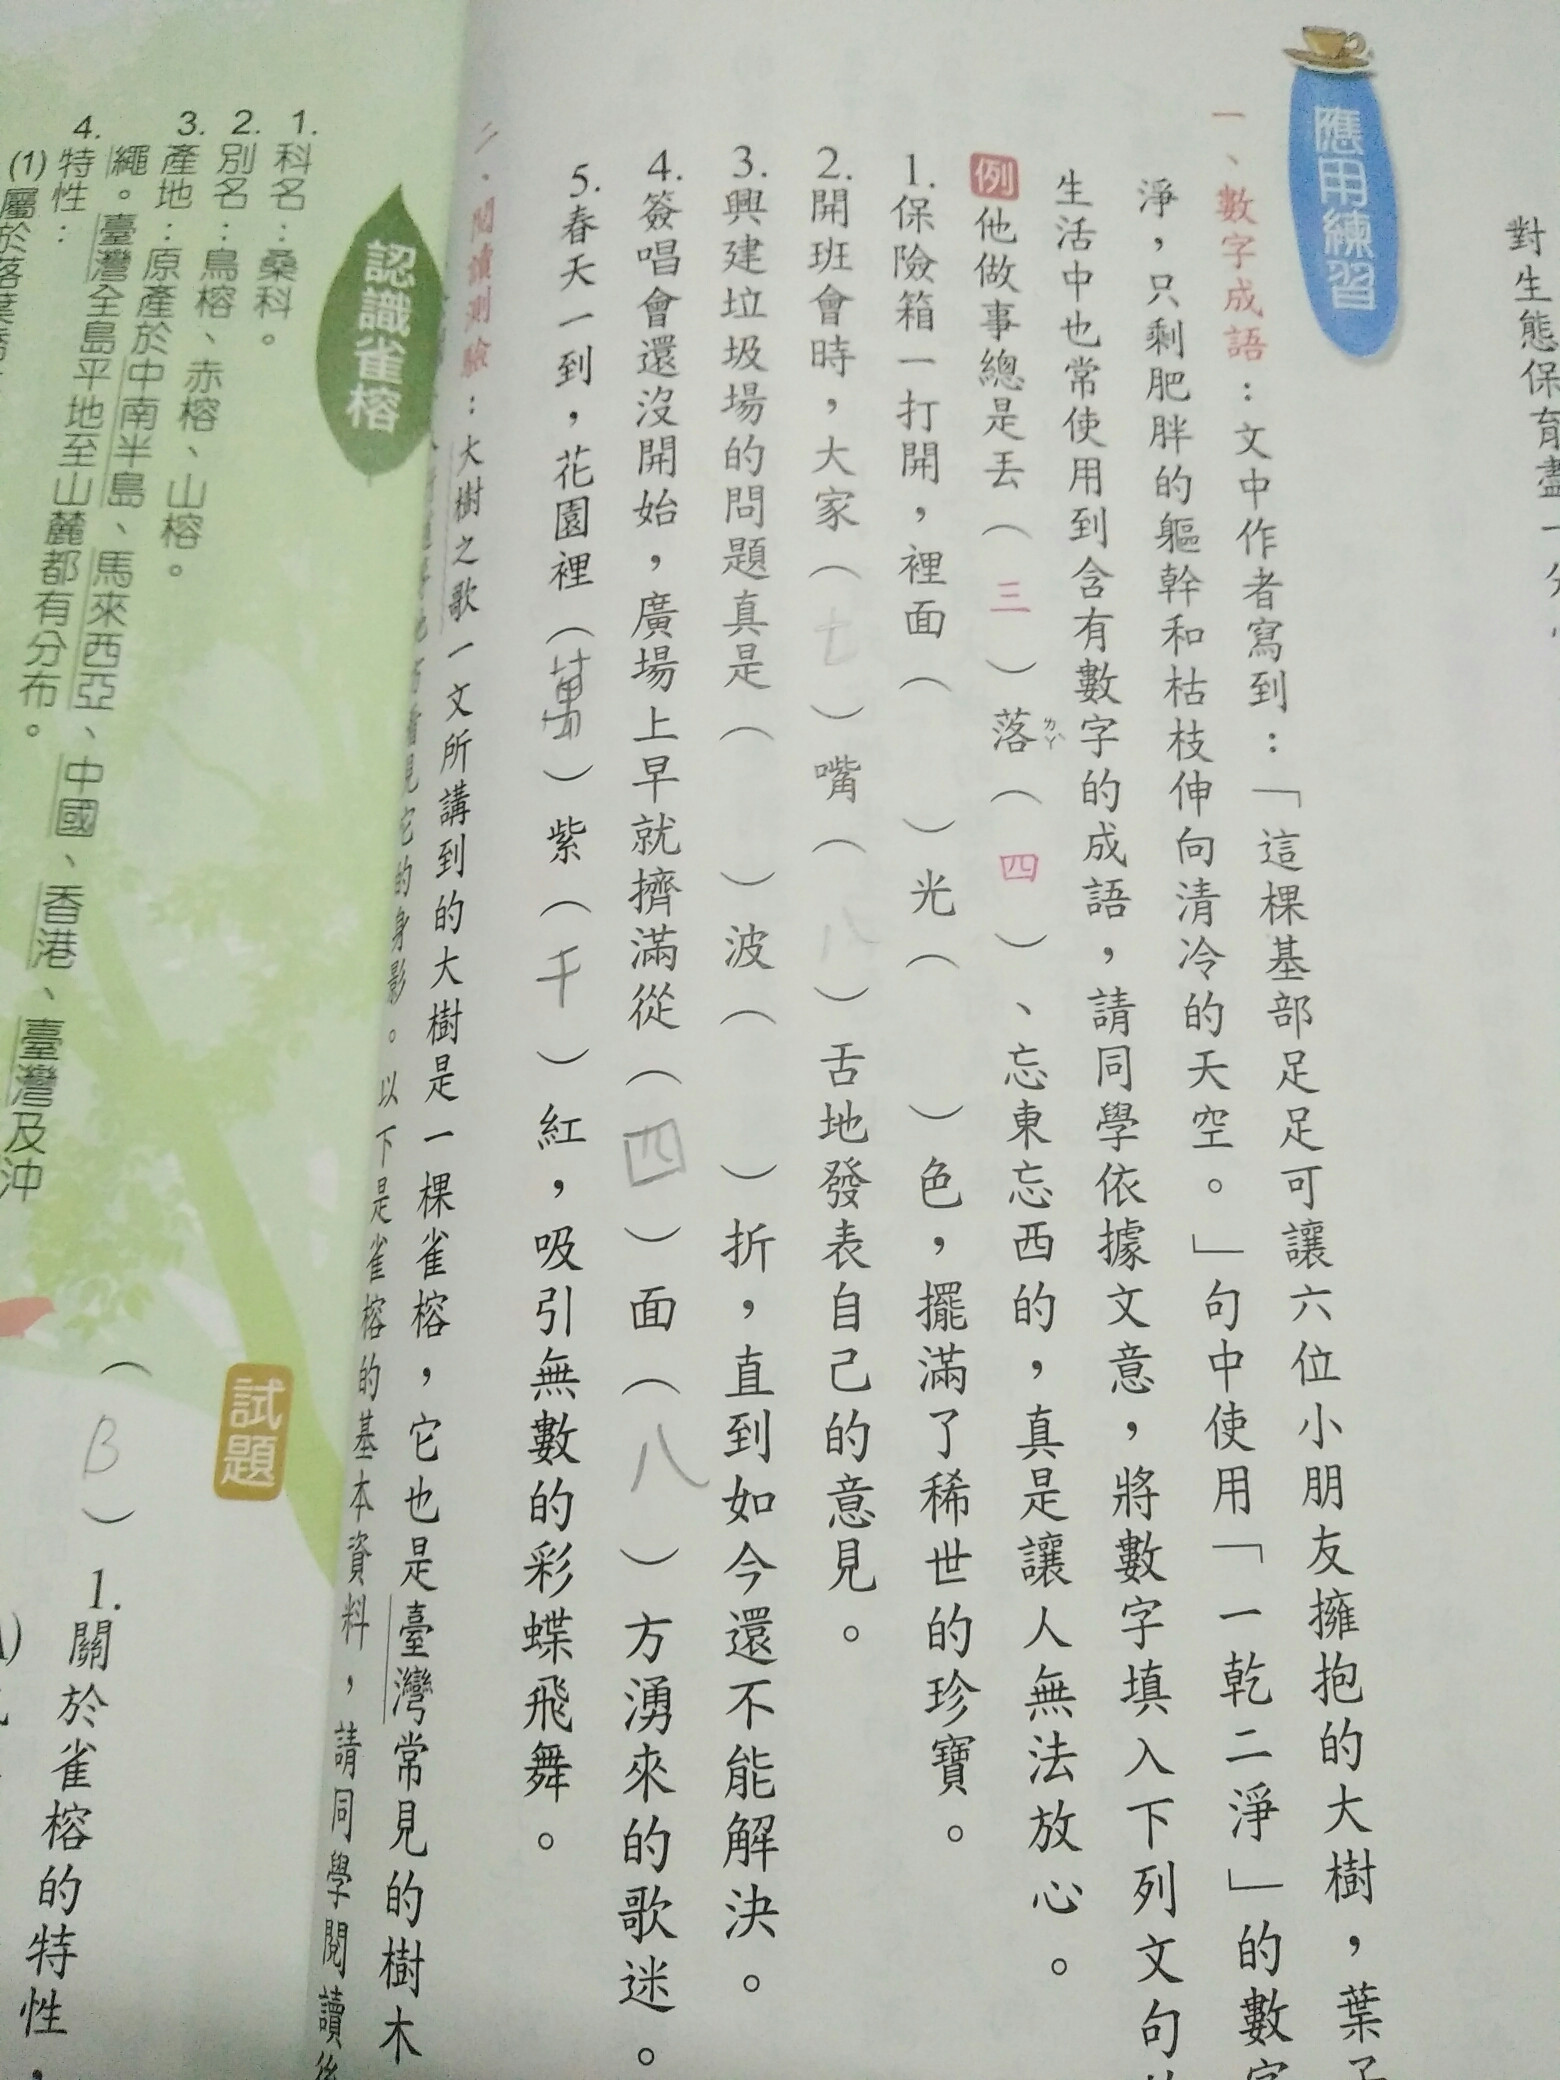 對生態保育盡一分心
應用練習
一、數字成語：文中作者寫到：「這棵基部足足可讓六位小朋友擁抱的大樹，葉子
淨，只剩肥胖的軀幹和枯枝伸向清冷的天空。」句中使用「一乾二淨」的數字
生活中也常使用到含有數字的成語，請同學依據文意，將數字填入下列文句
例他做事總是丟（三）落ㄌㄚˋ（四）、忘東忘西的，真是讓人無法放心。
1.保險箱一打開，裡面（ ）光（ ）色，擺滿了稀世的珍寶。
2.開班會時，大家（七）嘴（八）舌地發表自己的意見。
3.興建垃圾場的問題真是（ ）波（ ）折，直到如今還不能解決。
4.簽唱會還沒開始，廣場上早就擠滿從（四）面（八）方湧來的歌迷。
5.春天一到，花園裡（萬）紫（千）紅，吸引無數的彩蝶飛舞。
二、閱讀測驗：大樹之歌一文所講到的大樹是一棵雀榕，它也是臺灣常見的樹木
見它的身影。以下是雀榕的基本資料，請同學閱讀後
認識雀榕
1.科名：桑科。
2.別名：鳥榕、赤榕、山榕。
3.產地：原產於中南半島、馬來西亞、中國、香港、臺灣及沖
繩。臺灣全島平地至山麓都有分布。
4.特性：
(1)屬於落葉喬
試題
（B）1.關於雀榕的特性，